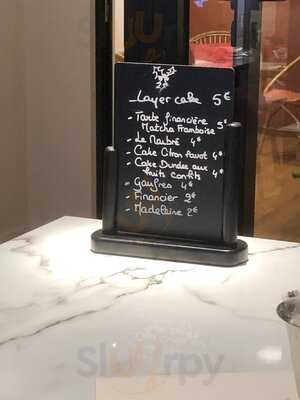 Layer cake 5€
- Tarte financière
Matcha Framboise 5€
- Le Marbré 4€
- Cake Citron Pavot 4€
- Cake Dundee aux
fruits confits 4€
- Gaufres 4€
- Financier 2€
- Madeleine 2€
Sluurpy